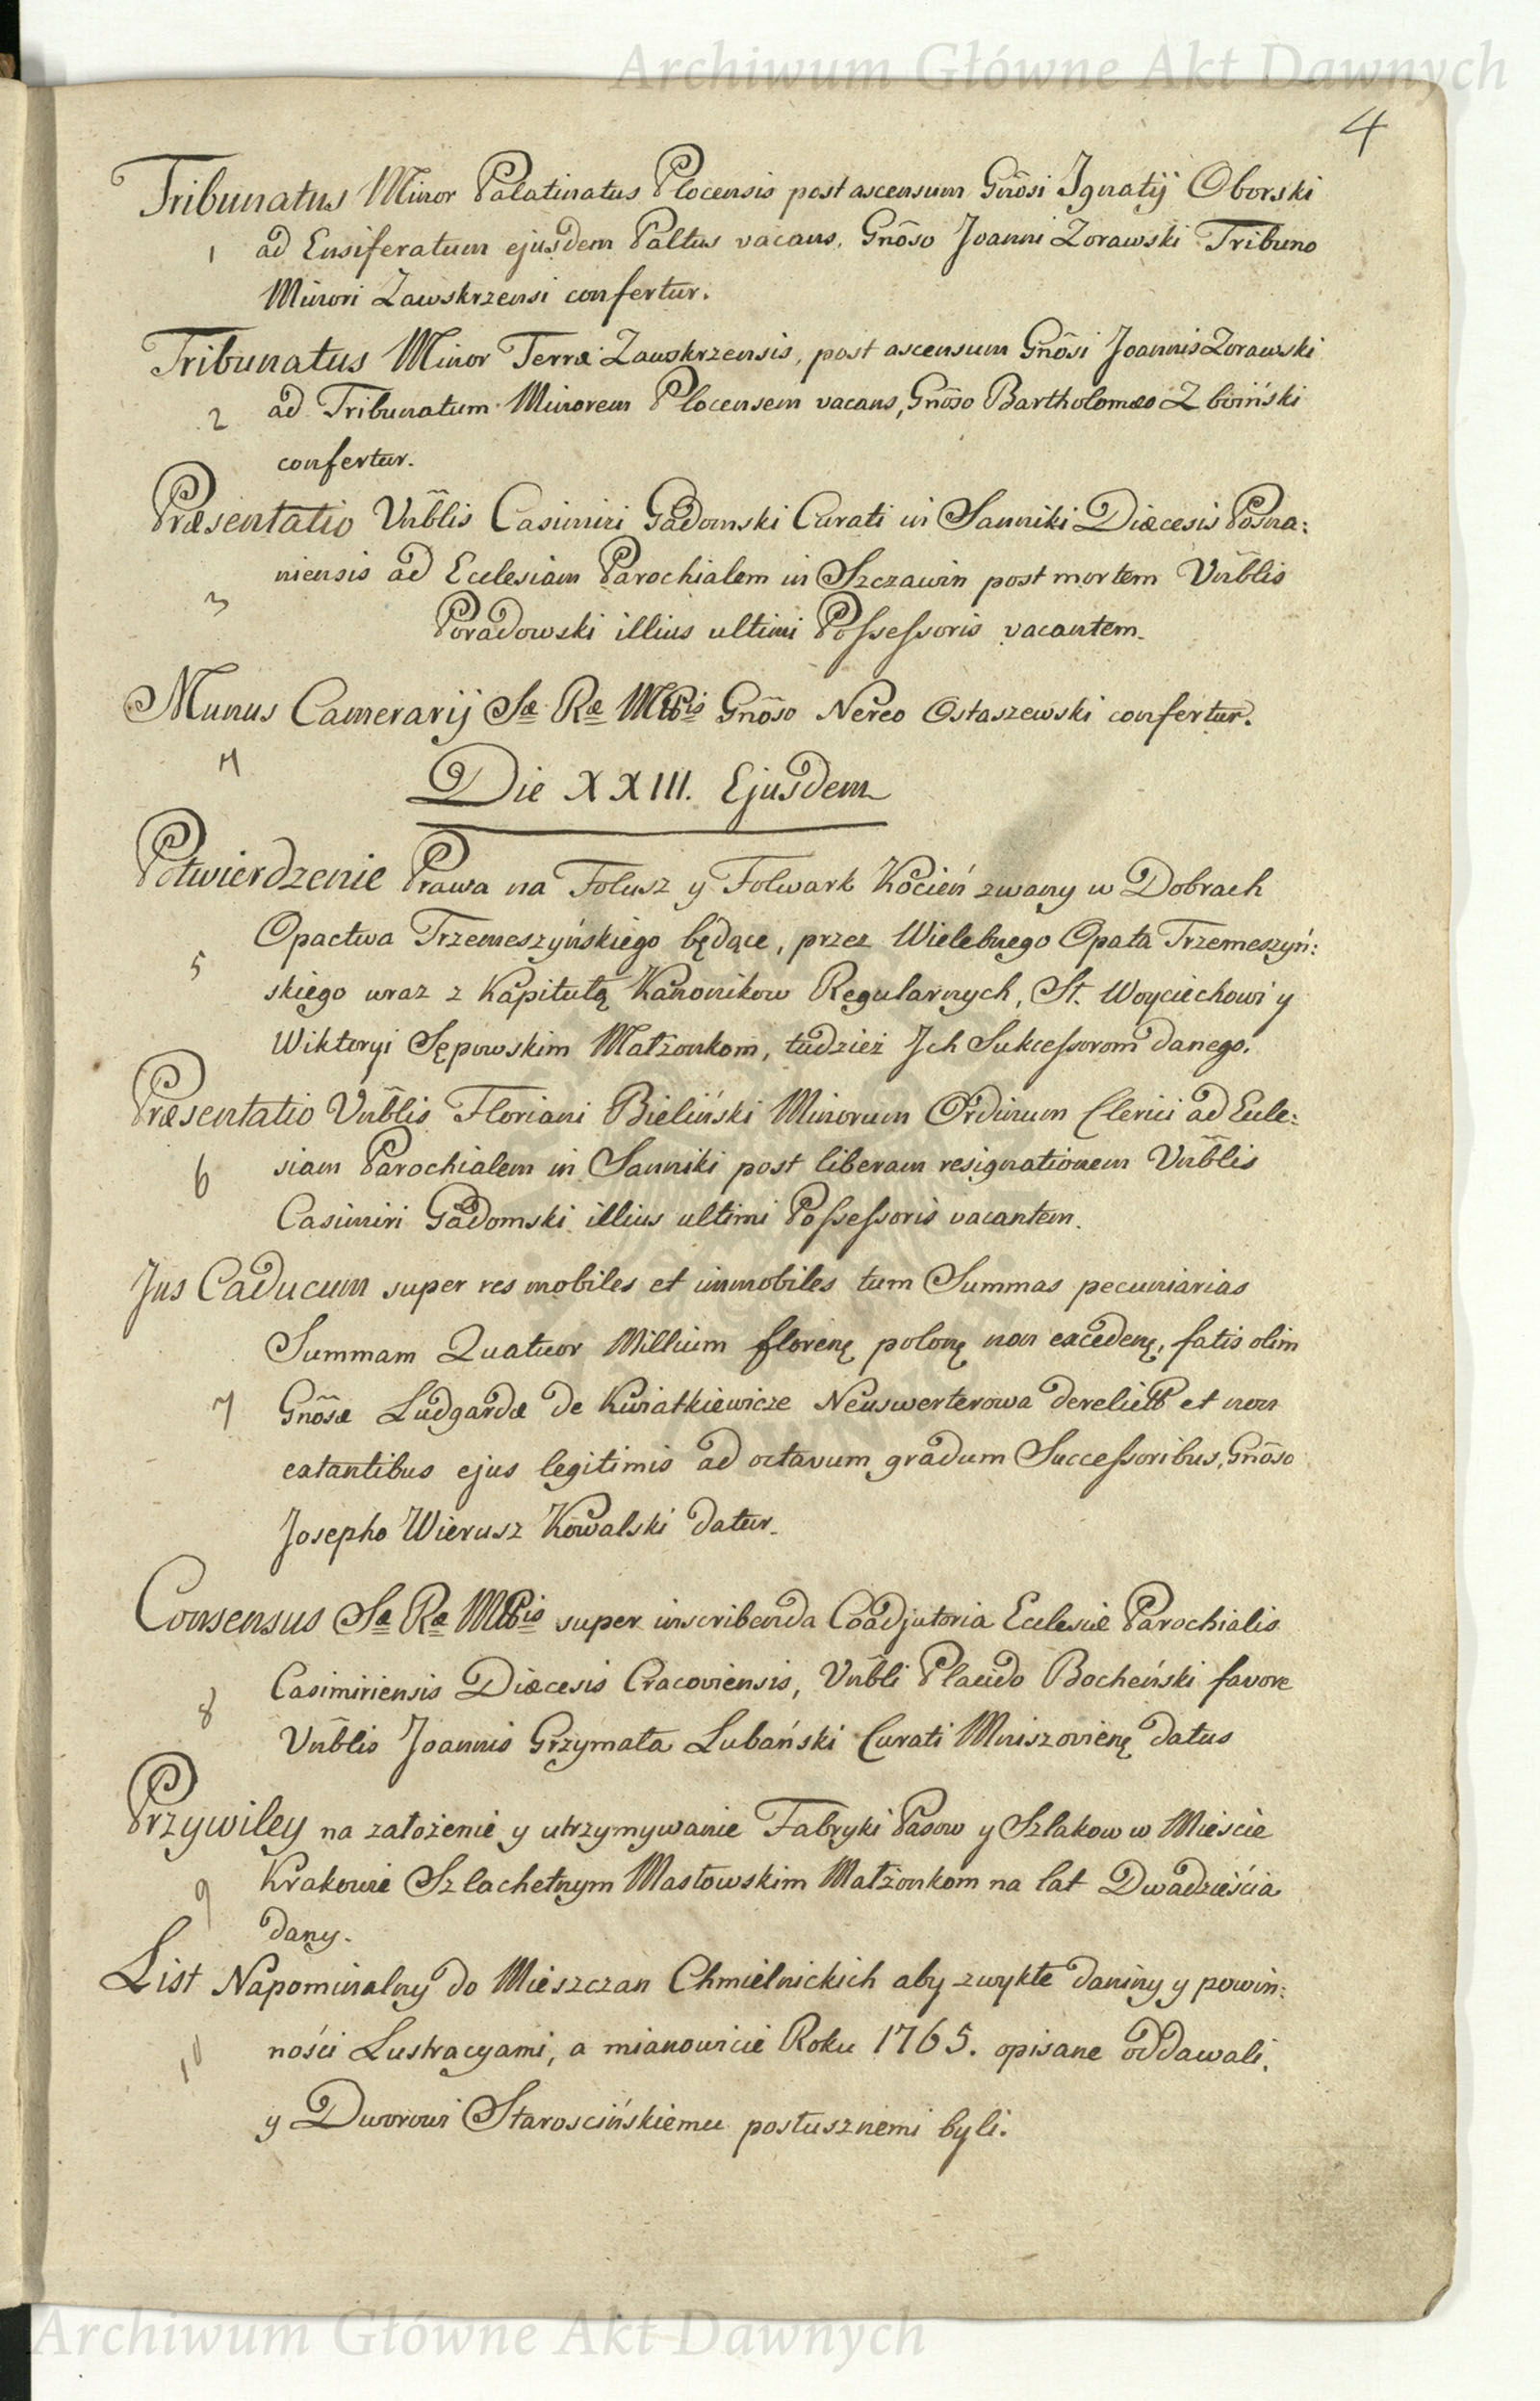 Archiwum Główne Akt Dawnych
4
Tribunatus Minor Palatinatus Plocensis post ascensum Gnõsi Ignatij Oborski
1 ad Ensiferatum ejusdem Paltus vacans, Gnõso Joanni Zorawski Tribuno
Minori Zawskrzensi confertur.
Tribunatus Minor Terræ Zawskrzensis, post ascensum Gnõsi Joannis Zorawski
2 ad Tribunatum Minorem Plocensem vacans, Gnõso Bartholomæo Zboiński
confertur.
Præsentatio Vñblis Casimiri Gadomski Curati in Sanniki Diæcesis Posna:
niensis ad Ecclesiam Parochialem in Szczawin post mortem Vñblis
3
Poradowski illius ultimi Possessoris vacantem.
Munus Camerarij Sæ Ræ Mttis Gnõso Nereo Ostaszewski confertur.
4
Die XXIII. Ejusdem
Potwierdzenie Prawa na Folusz y Folwark Kocień zwany w Dobrach
Opactwa Trzemeszyńskiego będące, przez Wielebnego Opata Trzemeszyń:
5 skiego wraz z Kapitułą Kanonikow Regularnych, St. Woyciechowi y
Wiktoryi Sępowskim Małżonkom, tudzież Jch Sukcessorom danego.
Præsentatio Vñblis Floriani Bieliński Minorum Ordinum Clerici ad Eccle:
6 siam Parochialem in Sanniki post liberam resignationem Vñblis
Casimiri Gadomski illius ultimi Possessoris vacantem.
Jus Caducum super res mobiles et immobiles tum Summas pecuniarias
Summam Quatuor Millium florenę polonę non excedenę, fatis olim
7 Gnõsæ Ludgardæ de Kwiatkiewicze Neuswerterowa derelictt et non
extantibus ejus legitimis ad octavum gradum Successoribus, Gnõso
Josepho Wierusz Kowalski datur.
Consensus Sæ Ræ Mttis super inscribenda Coadjutoria Ecclesiæ Parochialis
Casimiriensis Diæcesis Cracoviensis, Vñbli Placido Bocheński favore
8
Vñblis Joannis Grzymała Lubański Curati Mniszovienę datus
Przywiley na założenie y utrzymywanie Fabryki Pasow y Szlakow w Mieście
9 Krakowie Szlachetnym Masłowskim Małżonkom na lat Dwadzieścia
dany.
List Napominalny do Mieszczan Chmielnickich aby zwykłe daniny y powin:
10 ności Lustracyami, a mianowicie Roku 1765. opisane oddawali,
y Dworowi Staroscińskiemu posłusznemi byli.
Archiwum Główne Akt Dawnych